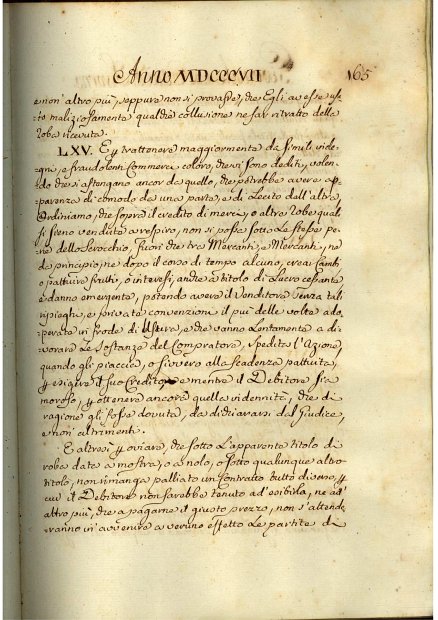 Anno MDCCCVII 165
e non' altro più, seppure non si provasse, che Egli avesse usa-
to maliziosamente qualche collusione ne far ritratto della
roba ricevuta.
LXV. E ꝑ trattenere maggiormente da simili inde-
gni, e fraudolenti Commerci coloro, che vi sono dediti, volen-
do che si astengano ancor da quello, che potrebbe avere ap-
parenza di comodo da una parte, e di Lecito dall' altra,
Ordiniamo, che sopra il credito di merci, o altre robe qual-
si sieno vendute a respiro, non si possa sotto Le stesse pe-
ne dello Scrocchio, fuori che tra Mercanti, e Mercanti, ne
da principio, ne dopo il corso di tempo alcuno, crear Cambi,
o pattuire frutti, o interessi, anche a titolo di Lucro cessante,
e danno emergente, potendo avere il Venditore senza tali
ripieghi, e private convenzioni il più delle volte ado-
perate in frode di Usure, e che vanno Lentamente a di-
vorare Le Sostanze del Compratore, spedita L'Azione,
quando gli piaccia, o sivvero alla scadenza pattuita,
ꝑ esigere il suo Credito, e mentre il Debitore sia
moroso, ꝑ ottenere ancora quelle indennità, che di
ragione gli fosse dovuta, da dichiararsi dal Giudice,
e non' altrimenti.
E altresì ꝑ ovviare, che sotto L'apparente titolo di
roba data a mostra, o a nolo, o sotto qualunque altro
titolo, non rimanga palliato un Contratto tutto diverso, ꝑ
cui il Debitore non sarebbe tenuto ad' esibirla, ne ad'
altro più, che a pagarne il giusto prezzo, non s'attende-
ranno in' avvenire a veruno effetto Le partite di